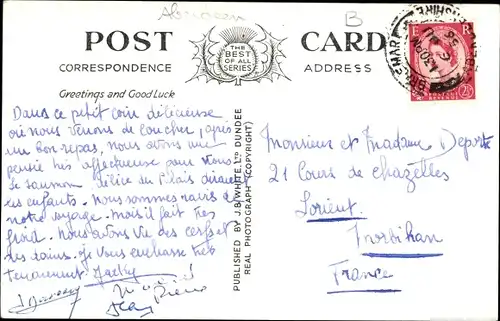 Aberdeen
B
POST CARD
THE BEST OF ALL SERIES
CORRESPONDENCE
ADDRESS
Greetings and Good Luck
Dans ce petit coin délicieuse
où nous venons de coucher, après
un bon repas, nous avons une
pensée très affectueuse pour vous
le saumon, délice du Palais
les enfants. Nous sommes ravis de
notre voyage. mais il fait très
froid. nous avons vu des cerfs et
des daims. je vous embrasse très
tendrement Jacky
Pierre
PUBLISHED BY J.B.WHITE, LTD DUNDEE
REAL PHOTOGRAPH (COPYRIGHT)
E R
POSTAGE REVENUE
2½
Monsieur et Madame Deporte
21 Cours de Chazelles
Lorient
Morbihan
France